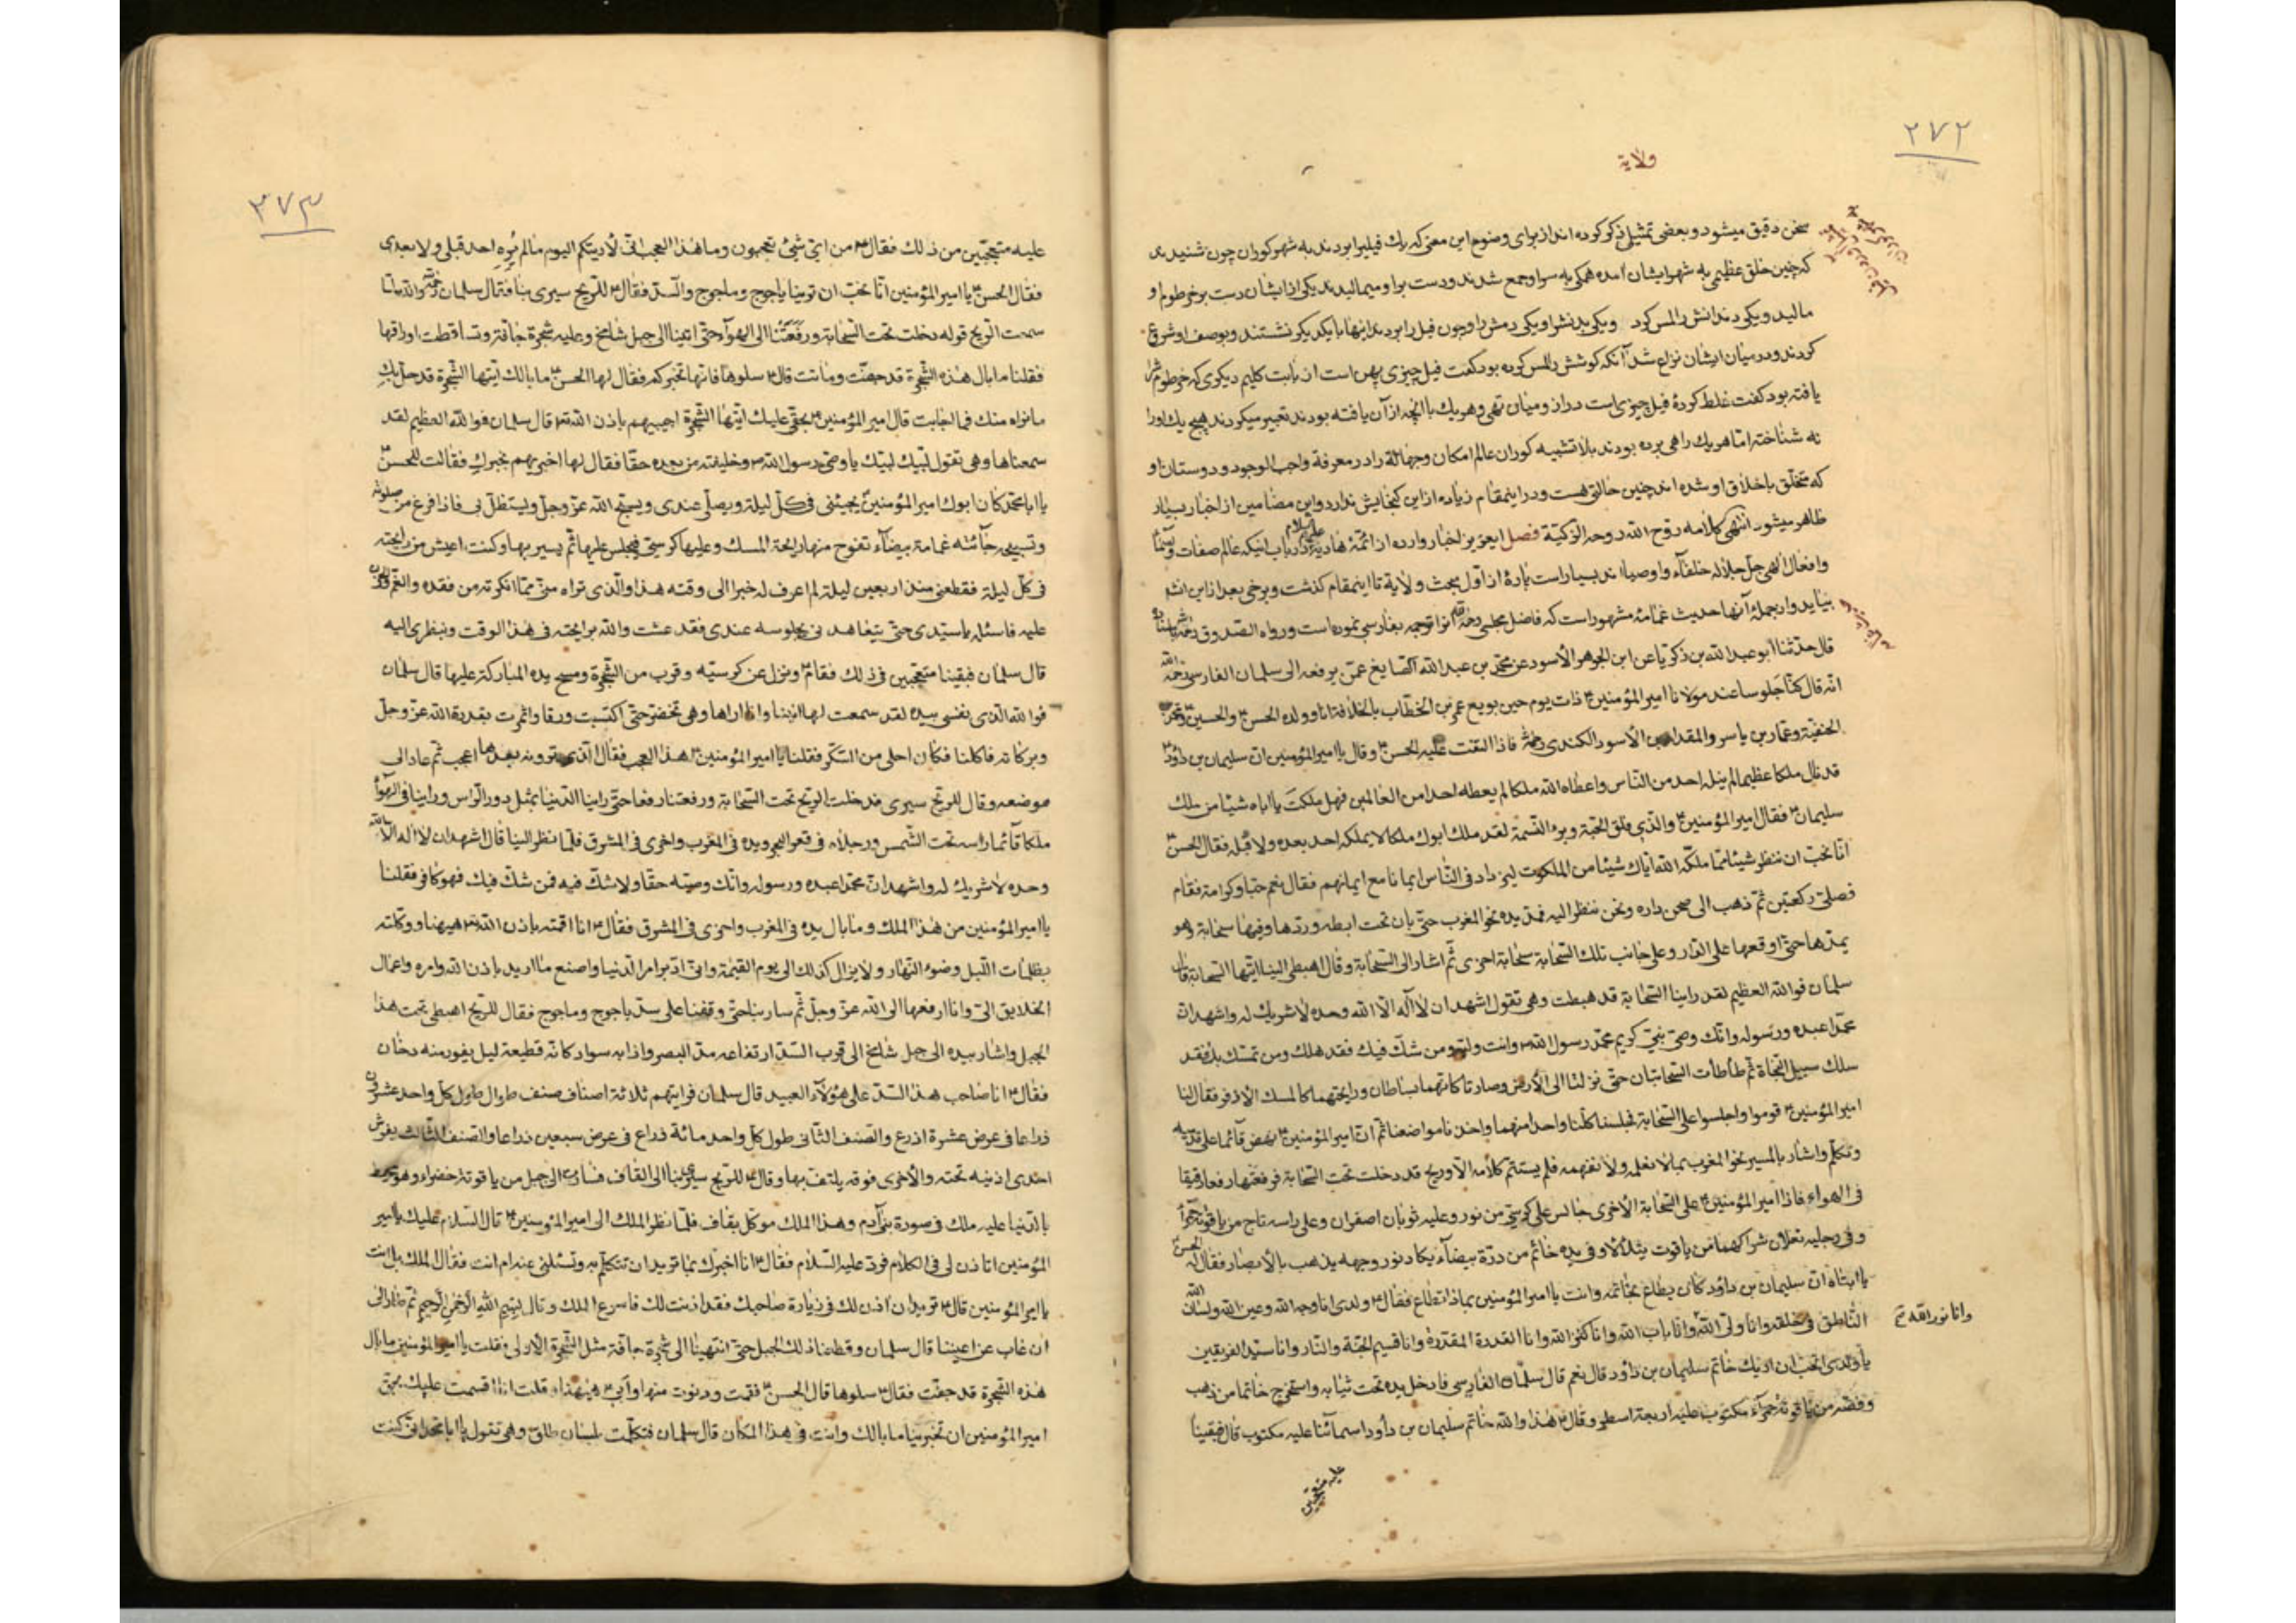 ۲۷۲
ولایة
سخن دقیق میشود و بعضی تمثیل ذکر کرده اند از برای وضوح این معنی که یك فیلیرا بردند به شهر کوران چون شنیدند
که چنین خلق عظیمی به شهر ایشان آمده همگی به سر او جمع شدند و دست بر او میمالیدند یکی از ایشان دست بر خرطوم او
مالید و یکی دندانش را لمس کرد و یکی بدنش را و یکی دمش را و چون فیل را بردند اینها با یکدیگر نشستند و بوصف او شروع
کردند و در میان ایشان نزاع شد آنکه گوشش را لمس کرده بود گفت فیل چیزی پهن است از بابت کلیم دیگری که خرطومش را
یافته بود گفت غلط کردهٔ فیل چیزی است دراز و میان تهی و هر یك با آنچه از آن یافته بودند تعبیر میکردند هیچ یك او را
نه شناخته اما هر یك راهی برده بودند بلا تشبیه کوران عالم امکان و جهالة را در معرفة واجب الوجود و دوستان او
که متخلّق باخلاق او شده اند چنین حالتی هست و در اینمقام زیاده از این گنجایش ندارد و این مضامین از اخبار بسیار
ظاهر میشود انتهی کلامه روّح الله روحه الزکیّة فصل ایعزیز اخبار وارده از ائمّهٔ هادیه علیهم السلام در باب اینکه عالم صفات و اسماء
و افعال الهی جلّ جلاله خلفاء و اوصیا اند بسیار است پارهٔ از اوّل بحث ولایة تا اینمقام گذشت و برخی بعد از این انشاء
بیاید و از جملهٔ آنها حدیث غمامهٔ مشهور است که فاضل مجلسی رحمه الله آنرا ترجمه بفارسی نموده است و رواه الصدوق رحمه باسناده
قال حدّثنا أبو عبد الله بن زکریّا عن ابن الجوهر الأسود عن محمّد بن عبد الله الصّایغ عمّن یرفعه الی سلمان الفارسی رحمه الله
انّه قال کنّا جلوسا عند مولانا امیر المؤمنین ع ذات یوم حین بویع عمر بن الخطّاب بالخلافة انا و ولده الحسن ع والحسین ع ومحمّد
الحنفیّة وعمّار بن یاسر والمقداد بن الأسود الکندی رضه فاذا التفت علیه الحسن ع وقال یا امیر المؤمنین انّ سلیمان بن داود ع
قد نال ملکا عظیما لم ینله احد من النّاس واعطاه الله ملکا لم یعطه احدا من العالمین فهل ملکتَ یا اباه شیئا من ملك
سلیمان ع فقال امیر المؤمنین ع والّذی فلق الحبّة وبرء النّسمة لقد ملك ابوك ملکا لا یملکه احد بعده ولا قبله فقال الحسن ع
انّا نحبّ ان ننظر شیئا ممّا ملّکه الله ایّاك شیئا من الملکوت لیزداد فی النّاس ایمانا مع ایمانهم فقال نعم حبّا وکرامة فقام
فصلّی رکعتین ثمّ ذهب الی صحن داره ونحن ننظر الیه فمدّ یده نحو المغرب حتّی بان تحت ابطه وردّها وفیها سحابة وهو
یمدّها حتّی اوقعها علی الدّار وعلی جانب تلك السّحابة سحابة اخری ثمّ اشار الی السّحابة وقال اهبطی الینا ایّتها السّحابة قال
سلمان فوالله العظیم لقد راینا السّحابة قد هبطت وهی تقول اشهد ان لا اله الّا الله وحده لا شریك له واشهد انّ
محمّدا عبده ورسوله وانّك وصیّ نبیّ کریم محمّد رسول الله ص وانت ولیّه ومن شكّ فیك فقد هلك ومن تمسّك بك فقد
سلك سبیل النّجاة ثمّ طأطأت السّحابتان حتّی نزلتا الی الأرض وصارتا کانّهما بساطان ورایحتهما کالمسك الأذفر فقال لنا
امیر المؤمنین ع قوموا واجلسوا علی السّحابة فجلسنا کلّنا واحدا منهما واخذنا مواضعنا ثمّ انّ امیر المؤمنین ع نهض قائما علی قدمیه
وتکلّم واشار بالمسیر نحو المغرب بما لا نعلمه ولا نفهمه فلم یستتم کلامه الّا وریح قد دخلت تحت السّحابة فرفعتها رفعا رقیقا
فی الهواء فاذا امیر المؤمنین ع علی السّحابة الأخری جالس علی کرسیّ من نور وعلیه ثوبان اصفران وعلی راسه تاج من یاقوتة حمرآء
وفی رجلیه نعلان شراکهما من یاقوت یتلألأ وفی یده خاتم من درّة بیضآء یکاد نور وجهه یذهب بالأبصار فقال له الحسن ع
یا ابتاه انّ سلیمان بن داود کان یطاع بخاتمه وانت یا امیر المؤمنین بماذا تطاع فقال ع ولدی انا وجه الله وعین الله ولسان الله
النّاطق فی خلقه وانا ولیّ الله وانا باب الله وانا کنز الله وانا القدرة المقدّرة وانا قسیم الجنّة والنّار وانا سیّد الفریقین
وانا نور الله
یا ولدی اتحبّ ان اریك خاتم سلیمان بن داود قال نعم قال سلمان الفارسی فادخل یده تحت ثیابه واستخرج خاتما من ذهب
وفصّه من یاقوتة حمرآء مکتوب علیه اربعة اسطر وقال ع هذا والله خاتم سلیمان بن داود اسمائنا علیه مکتوب قال فبقینا
علیه متعجّبین
۲۷۳
علیه متعجّبین من ذلك فقال ع من ایّ شیئ تعجبون وما هذا العجب انّی لأریتکم الیوم ما لم یُره احد قبلی ولا بعدی
فقال الحسن ع یا امیر المؤمنین انّا نحبّ ان ترینا یاجوج وماجوج والسّد فقال ع للرّیح سیری بنا فقال سلمان رحمه والله لمّا
سمعت الرّیح قوله دخلت تحت السّحابة ورفعتنا الی الهوآء حتّی اتینا الی جبل شامخ وعلیه شجرة جافّة وتساقطت اوراقها
فقلنا ما بال هذه الشّجرة قد جفّت وماتت قال ع سلوها فانّها تخبرکم فقال لها الحسن ع ما بالك ایّتها الشّجرة قد حلّ بكِ
ما نراه منك فما اجابت قال امیر المؤمنین ع بحقّی علیك ایّتها الشّجرة اجیبیهم باذن الله تع قال سلمان فوالله العظیم لقد
سمعناها وهی تقول لبّیك لبّیك یا وصیّ رسول الله ص وخلیفته من بعده حقّا فقال لها اخبریهم بخبركِ فقالت للحسن ع
یا ابا محمّد کان ابوك امیر المؤمنین ع یجیئنی فی کلّ لیلة ویصلّی عندی ویسبّح الله عزّ وجلّ ویستظلّ بی فاذا فرغ من صلوته
وتسبیحه جائته غمامة بیضآء تفوح منها رایحة المسك وعلیها کرسیّ فیجلس علیها ثمّ یسیر بها وکنت اعیش من رایحته
فی کلّ لیلة فقطعنی منذ اربعین لیلة لم اعرف له خبرا الی وقته هذا والّذی تراه منّی ممّا انکرته من فقده والغمّ والحزن
علیه فاسئله یا سیّدی حتّی یتعاهدنی بجلوسه عندی فقد عشت والله برایحته فی هذا الوقت وبنظری الیه
قال سلمان فبقینا متعجّبین فی ذلك فقام ع ونزل عن کرسیّه وقرب من الشّجرة ومسح یده المبارکة علیها قال سلمان
فوالله الّذی نفسی بیده لقد سمعت لها انینا وانا اراها وهی تخضرّ حتّی اکتسبت ورقا واثمرت بقدرة الله عزّ وجلّ
وبرکاته فاکلنا فکان احلی من السّکّر فقلنا یا امیر المؤمنین ع لهذا العجب فقال الّذی ترونه بعدها اعجب ثمّ عاد الی
موضعه وقال للرّیح سیری فدخلت الرّیح تحت السّحابة ورفعتنا رفعا حتّی راینا الدّنیا بمثل دور الرّاس وراینا فی الهوآء
ملکا قآئما راسه تحت الشّمس ورجلاه فی قعر البحر ویده فی المغرب واخری فی المشرق فلمّا نظر الینا قال اشهد ان لا اله الّا الله
وحده لا شریك له واشهد انّ محمّدا عبده ورسوله وانّك وصیّه حقّا ولا شكّ فیه فمن شكّ فیك فهو کافر فقلنا
یا امیر المؤمنین من هذا الملك وما بال یده فی المغرب واخری فی المشرق فقال ع انا اقمته باذن الله تع هیهنا ووکّلته
بظلمات اللّیل وضوء النّهار ولا یزال کذلك الی یوم القیمة وانّی ادبّر امر الدّنیا واصنع ما ارید باذن الله وامره واعمال
الخلایق الیّ وانا ارفعها الی الله عزّ وجلّ ثمّ سار بنا حتّی وقفنا علی سدّ یاجوج وماجوج فقال للرّیح اهبطی تحت هذا
الجبل واشار بیده الی جبل شامخ الی قرب السّدّ ارتفاعه مدّ البصر واذا به سواد کانّه قطیعة لیل یفور منه دخان
فقال ع انا صاحب هذا السّدّ علی هؤلاء العبید قال سلمان فرایتهم ثلاثة اصناف صنف طوال طول کلّ واحد عشرون
ذراعا فی عرض عشرة اذرع والصّنف الثّانی طول کلّ واحد مائة ذراع فی عرض سبعین ذراعا والصّنف الثّالث یفرش
احدی اذنیه تحته والأخری فوقه یلتفّ بها وقال ع للرّیح سیری بنا الی القاف فسارت الی جبل من یاقوتة خضراء وهو محیط
بالدّنیا علیه ملك فی صورة بنی آدم وهذا الملك موکّل بقاف فلمّا نظر الملك الی امیر المؤمنین ع قال السّلام علیك یا امیر
المؤمنین اتاذن لی فی الکلام فردّ علیه السّلام فقال ع انا اخبرك بما ترید ان تتکلّم به وتسئلنی عنه ام انت فقال الملك بل انت
یا امیر المؤمنین قال ع ترید ان آذن لك فی زیارة صاحبك فقد اذنت لك فاسرع الملك وقال بسم الله الرّحمن الرّحیم ثمّ طار الی
ان غاب عن اعیننا قال سلمان وقطعنا ذلك الجبل حتّی انتهینا الی شجرة جافّة مثل الشّجرة الأولی فقلت یا امیر المؤمنین ما بال
هذه الشّجرة قد جفّت فقال ع سلوها قال الحسن ع فقمت ودنوت منها وابی ع هیهنا قلت انا اقسمت علیك بحقّ
امیر المؤمنین ان تخبرینا ما بالك وانت فی هذا المکان قال سلمان فتکلّمت بلسان طلق وهی تقول یا ابا محمّد انّی کنت